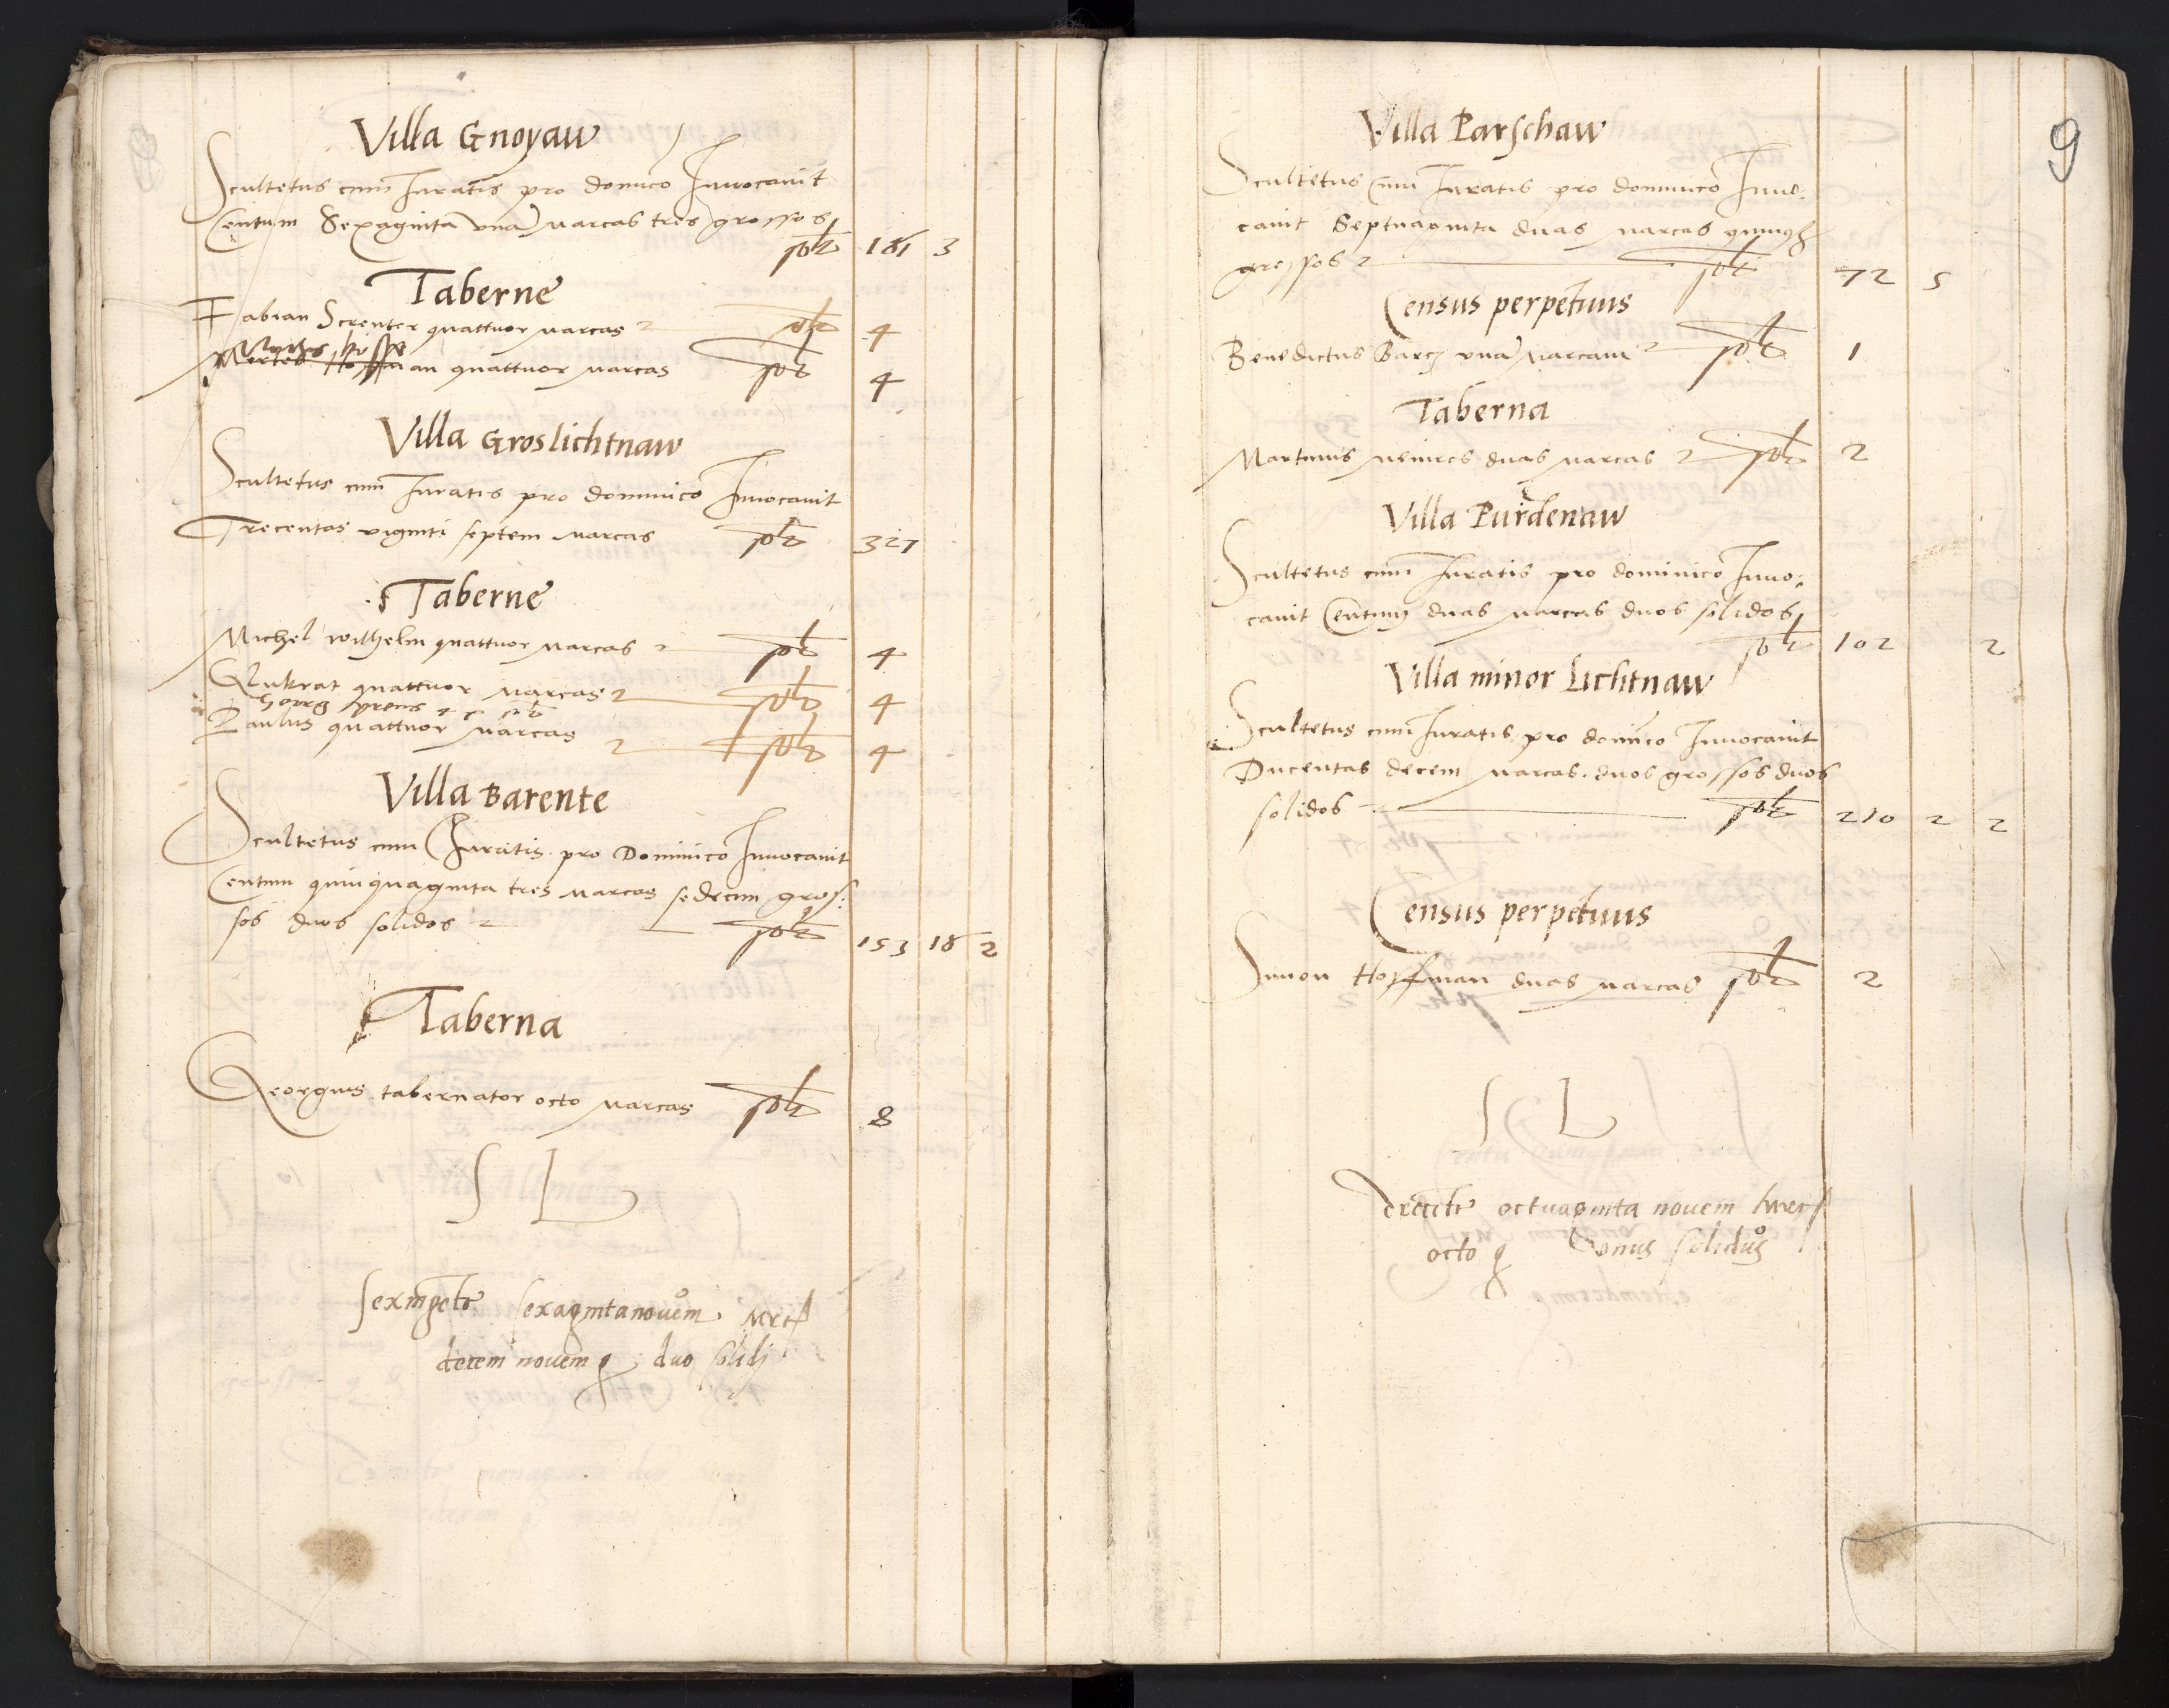 Villa Gnoyaw
Scultetus cum Juratis pro dominico Invocavit
Centum Sexaginta una marcas tres grossos
solt 161 3
Taberne
Fabian Screnter quattuor marcas solt 4
quattuor marcas solt 4
Villa Groslichtnaw
Scultetus cum Juratis pro dominico Invocavit
Trecentas viginti septem marcas solt 327
Taberne
Michel Wilhelm quattuor marcas solt 4
quattuor marcas solt 4
Georg prens
Paulus quattuor marcas solt 4
Villa Barente
Scultetus cum Juratis pro Dominico Invocavit
Centum quinquaginta tres marcas sedecim gros:
sos duos solidos solt 153 16 2
Taberna
Georgius tabernator octo marcas solt 8
S L
sexingete sexagintanovem mrc
decem novem g duo solidj
9
Villa Parschaw
Scultetus cum Juratis pro dominico Invo:
cavit Septuaginta duas marcas quinqz
grossos solt 72 5
Census perpetuus
Benedictus Barcz una marcam solt 1
Taberna
Martinus duas marcas solt 2
Villa Purdenaw
Scultetus cum Juratis pro dominico Invo:
cavit Centum duas marcas duos solidos
solt 102 2
Villa minor Lichtnaw
Scultetus cum Juratis pro dominico Invocavit
Ducentas decem marcas duos grossos duos
solidos solt 210 2 2
Census perpetuus
Simon Hoffman duas marcas solt 2
S L
octuaginta novem
octo g unus solidus